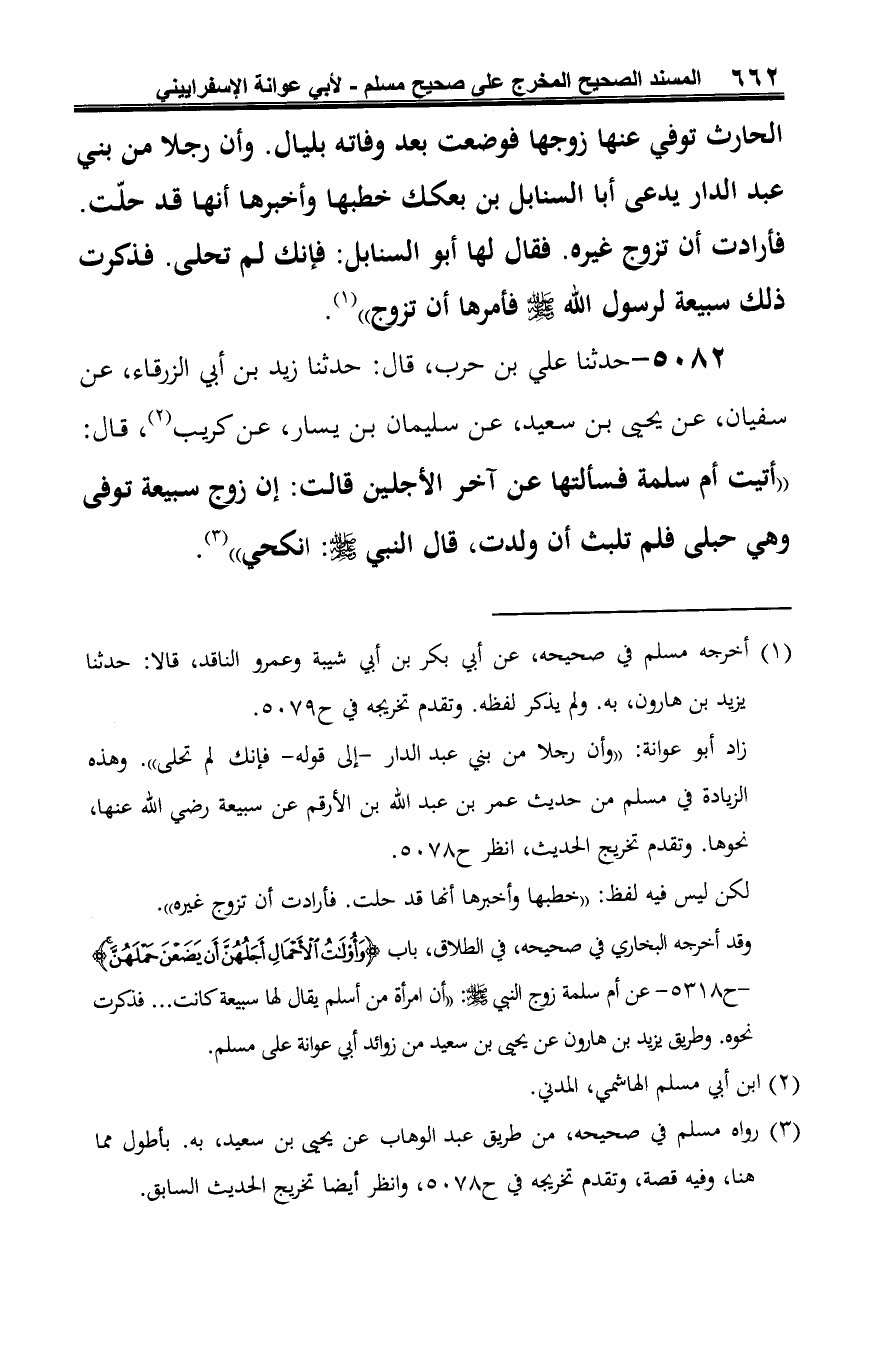 ٦٦٢ المسند الصحيح المخرج على صحيح مسلم - لأبي عوانة الإسفراييني
الحارث توفي عنها زوجها فوضعت بعد وفاته بليال. وأن رجلا من بني
عبد الدار يدعى أبا السنابل بن بعكك خطبها وأخبرها أنها قد حلّت.
فأرادت أن تزوج غيره. فقال لها أبو السنابل: فإنك لم تحلى. فذكرت
ذلك سبيعة لرسول الله ﷺ فأمرها أن تزوج»(١).
٥٠٨٢-حدثنا علي بن حرب، قال: حدثنا زيد بن أبي الزرقاء، عن
سفيان، عن يحيى بن سعيد، عن سليمان بن يسار، عن كريب(٢)، قال:
«أتيت أم سلمة فسألتها عن آخر الأجلين قالت: إن زوج سبيعة توفى
وهي حبلى فلم تلبث أن ولدت، قال النبي ﷺ: انكحي»(٣).
(١) أخرجه مسلم في صحيحه، عن أبي بكر بن أبي شيبة وعمرو الناقد، قالا: حدثنا
يزيد بن هارون، به. ولم يذكر لفظه. وتقدم تخريجه في ح٥٠٧٩.
زاد أبو عوانة: «وأن رجلا من بني عبد الدار -إلى قوله- فإنك لم تحلى». وهذه
الزيادة في مسلم من حديث عمر بن عبد الله بن الأرقم عن سبيعة رضي الله عنها،
نحوها. وتقدم تخريج الحديث، انظر ح٥٠٧٨.
لكن ليس فيه لفظ: «خطبها وأخبرها أنها قد حلت. فأرادت أن تزوج غيره».
وقد أخرجه البخاري في صحيحه، في الطلاق، باب ﴿وَأُوْلَٰتُ ٱلْأَحْمَالِ أَجَلُهُنَّ أَن يَضَعْنَ حَمْلَهُنَّ ۚ﴾
-ح٥٣١٨- عن أم سلمة زوج النبي ﷺ: «أن امرأة من أسلم يقال لها سبيعة كانت... فذكرت
نحوه. وطريق يزيد بن هارون عن يحيى بن سعيد من زوائد أبي عوانة على مسلم.
(٢) ابن أبي مسلم الهاشمي، المدني.
(٣) رواه مسلم في صحيحه، من طريق عبد الوهاب عن يحيى بن سعيد، به. بأطول مما
هنا، وفيه قصة، وتقدم تخريجه في ح٥٠٧٨، وانظر أيضا تخريج الحديث السابق.